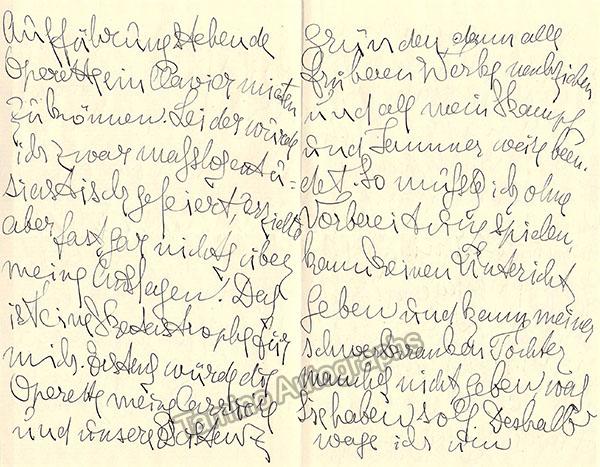 Aufführung stehende
Operette ein Clavier mieten
zu können. Leider wurde
ich zwar masslos entu-
siastisch gefeiert, erzielte
aber fast gar nichts über
meine Auslagen! Das
ist eine Katastrophe für
mich. Erstens würde die
Operette meine Carriere
und unsere Existenz
gründen, dann alle
früheren Werke nachziehen
und all mein Kampf
und Jammer wäre been-
det. So müsste ich ohne
Vorbereitung spielen,
kann keinen Unterricht
geben und kann meiner
schwerkranken Tochter
nicht geben, was
sie haben soll. Deshalb
wage ich um
Tamino Autographs